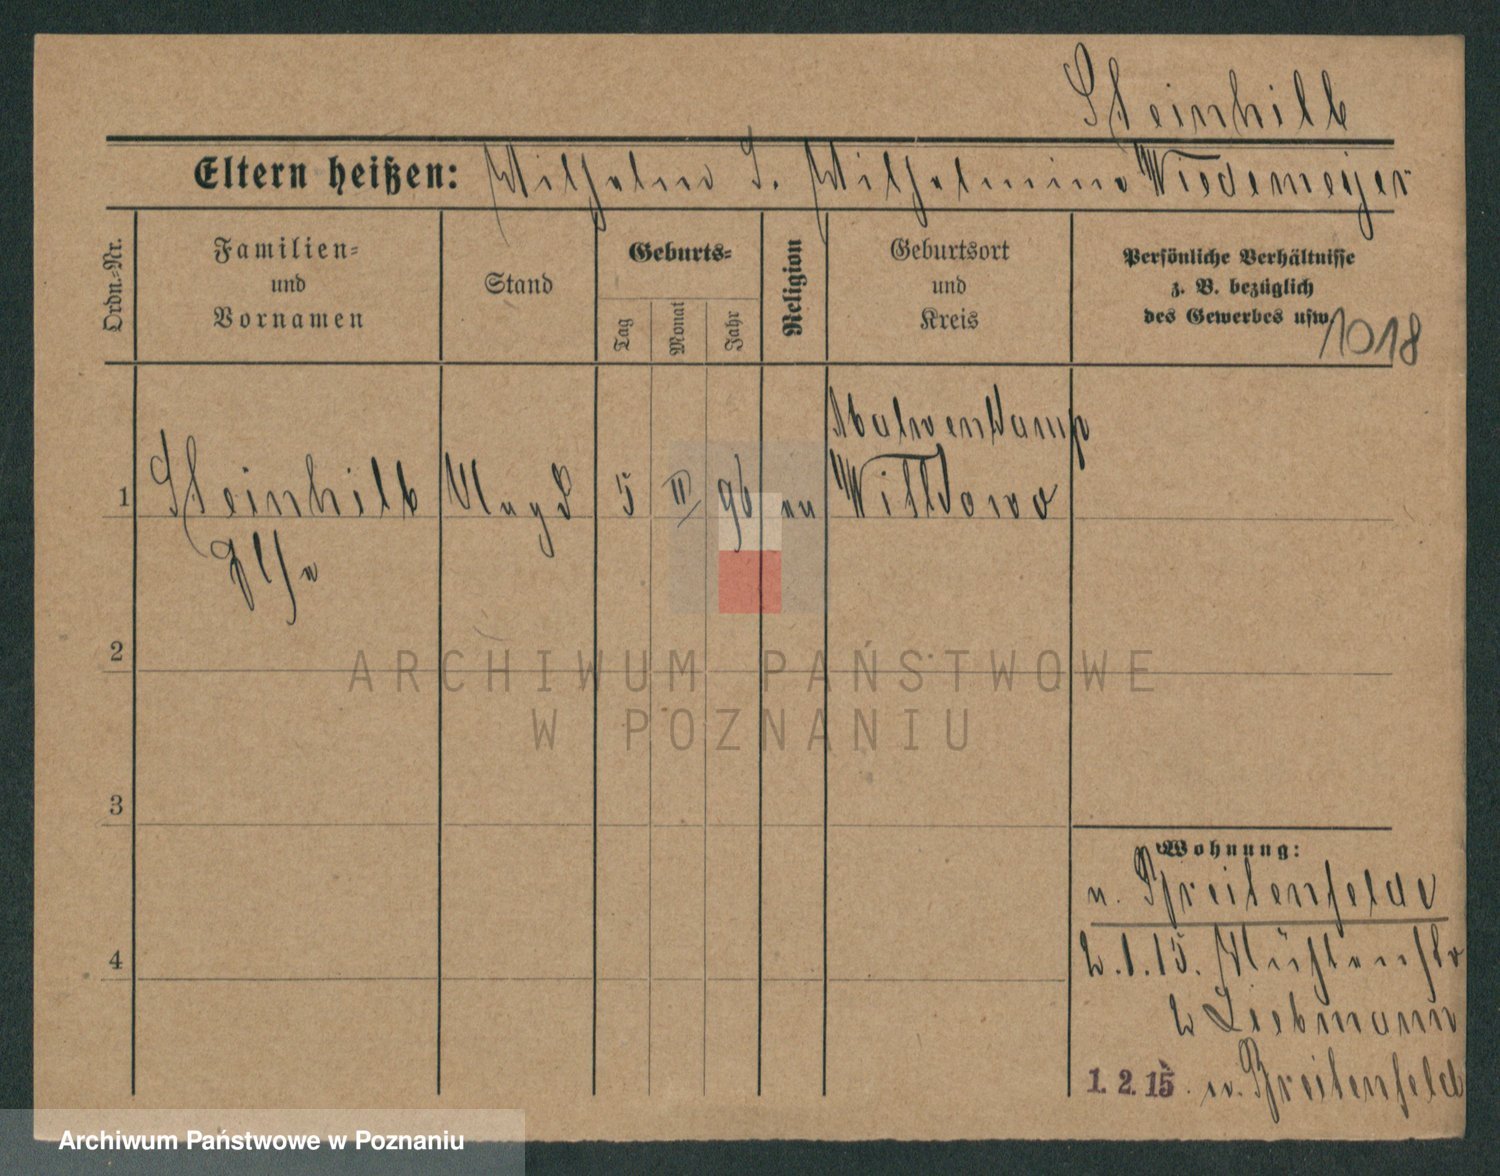 Steinhilb
Eltern heißen: Wilhelm S. Wilhelmine Wiedemeyer
Ordn.-Nr.
Familien-
und
Vornamen
Stand
Geburts-
Tag
Monat
Jahr
Religion
Geburtsort
und
Kreis
Persönliche Verhältnisse
z. B. bezüglich
des Gewerbes usw.
1018
1
Steinhilb
Else
Magd
5
II
96
ev
Malwenkamp
Wittkowo
2
3
4
Wohnung:
n. Breitenfelde
2.1.15. Mühlenstr
2 Liebmann
1. 2. 15. n. Breitenfeld
ARCHIWUM PAŃSTWOWE
W POZNANIU
Archiwum Państwowe w Poznaniu